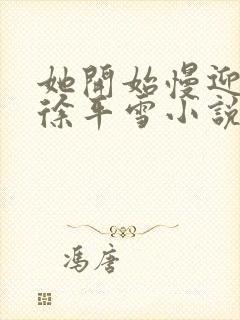 她開始慢迎
徐平雪小說
馮唐